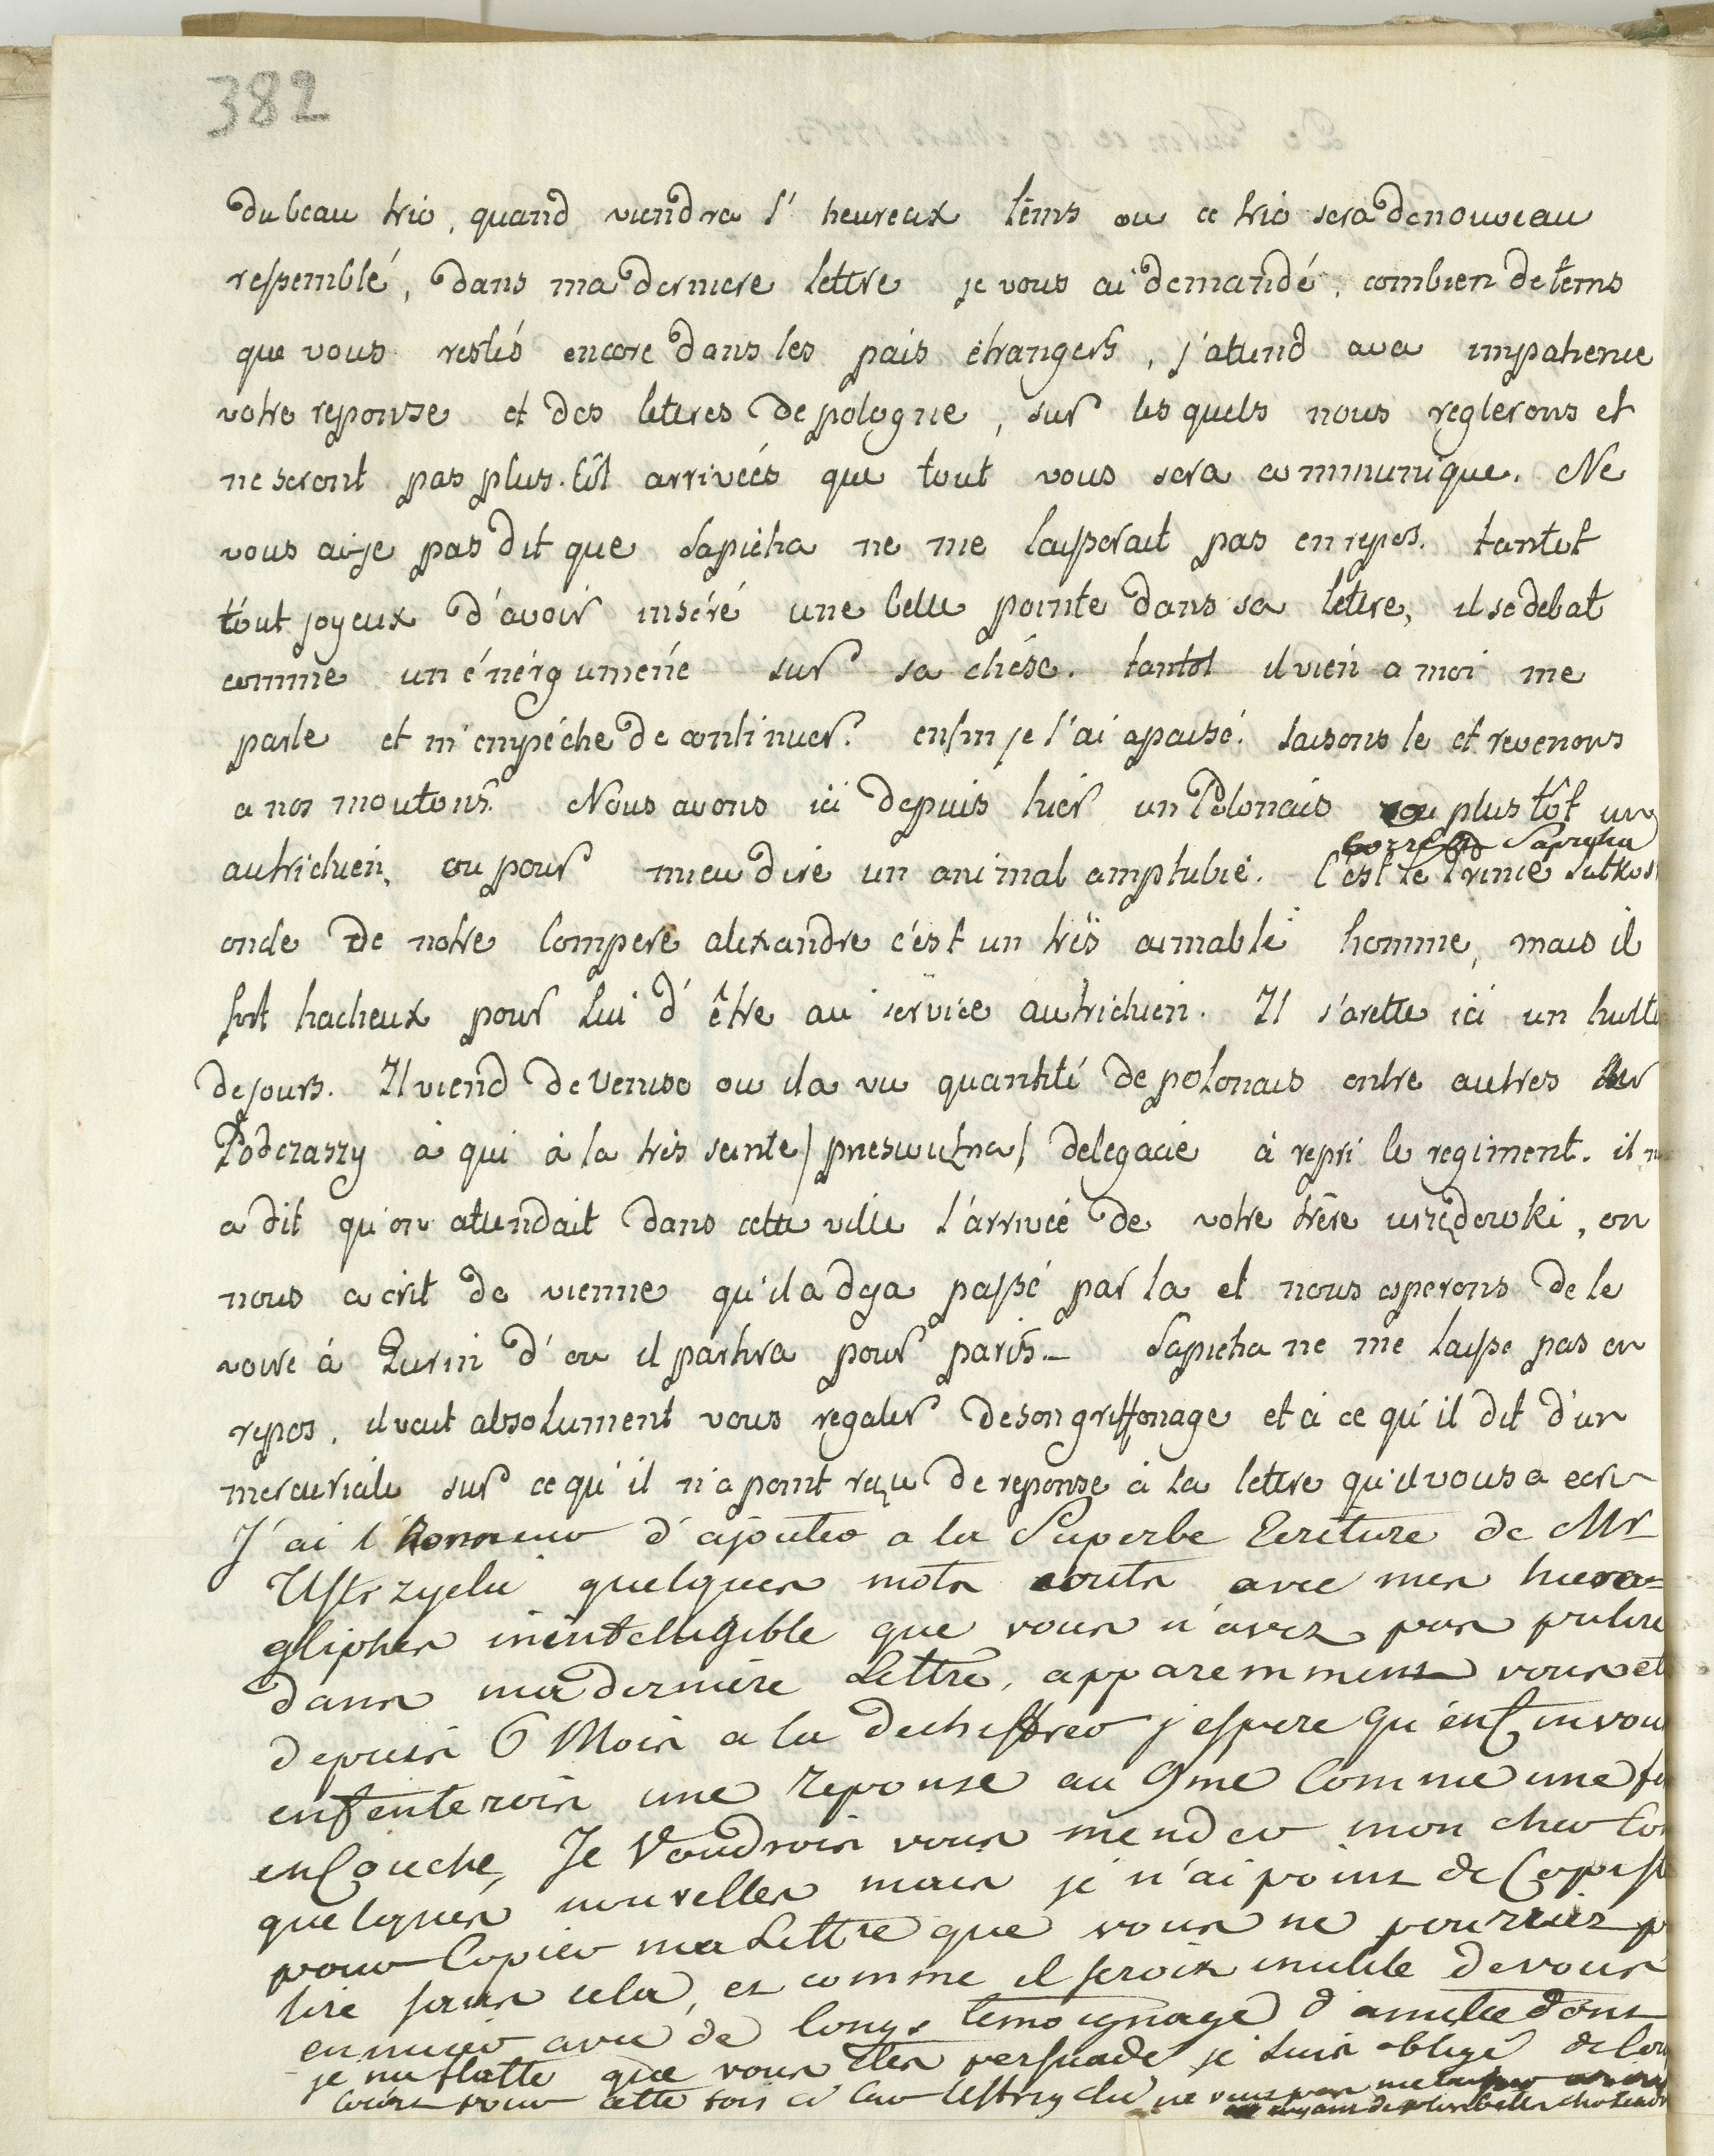 382
du beau trio, quand viendra l' heureux têms ou ce trio sera denouveau
ressemblé, dans ma derniere lettre je vous ai demandé, combien detems
que vous restés encore dans les païs étrangers, j'attend avec impatience
votre reponse et des lettres de pologne, sur les quels nous reglerons et
ne seront pas plus.tôt arriveés que tout vous sera communique. Ne
vous ai-je pas dit que Sapieha ne me laisserait pas en repos. tantot
tout joyeux d'avoir inséré une belle pointe dans sa lettre, il se debat
comme un énérgumene sur sa chése. tantot il vien a moi me
parle et m'empéche de continuer. enfin je l'ai apaisé. laisons le et revenons
a nos moutons. Nous avons ici depuis hier un Polonais ou plus tôt un
Sapieha
autrichien, ou pour mieu dire un animal amphibie. C'est le Prince Sulkos
oncle de notre Compere alexandre c'est un trés aimable homme, mais il
fort facheux pour Lui d' être au service autrichien. Il s'arette ici un huit
de jours. Il viend de Venise ou il a vu quantité de polonais entre autres
Podczaszy à qui à la trés sainte / / delegacie à repri le regiment. il m
a dit qu'on attendait dans cette ville l'arriveé de votre frére urzędowski, on
nous a crit de vienne qu'il a deja passé par la et nous esperons de le
voire à Turin d'ou il partira pour paris — Sapieha ne me laisse pas en
repos, il vait absolument vous regaler de son griffonage et à ce qu'il dit d'un
mercuriale sur ce qu'il n'a point reçu de reponse à la lettre qu'il vous a ecri
J'ai l'Honneur d'ajouter a la Superbe Ecriture de Mr
Ustrzycki quelques mots avec mes hiero=
gliphes inintelligible que vous n'avez pas pu lire
dans ma derniere Lettre, apparemment vous et
depuis 6 Mois a la dechiffrer j'espere qu'énfin vou
enfenterois une reponse au 9me Comme une fe
en Couche, Je Voudrois vous mender mon cher Co
quelques nouvelles mais je n'ai point de Copist
pour Copier ma Lettre que vous ne pourriez p
lire sans cela, et comme il seroit inutile de vous
ennuier avec de longs temoignage d'amitie dont
je me flatte que vous etes persuadé je suis obligé de
pour cette fois Ustrzycki ne veut pas me